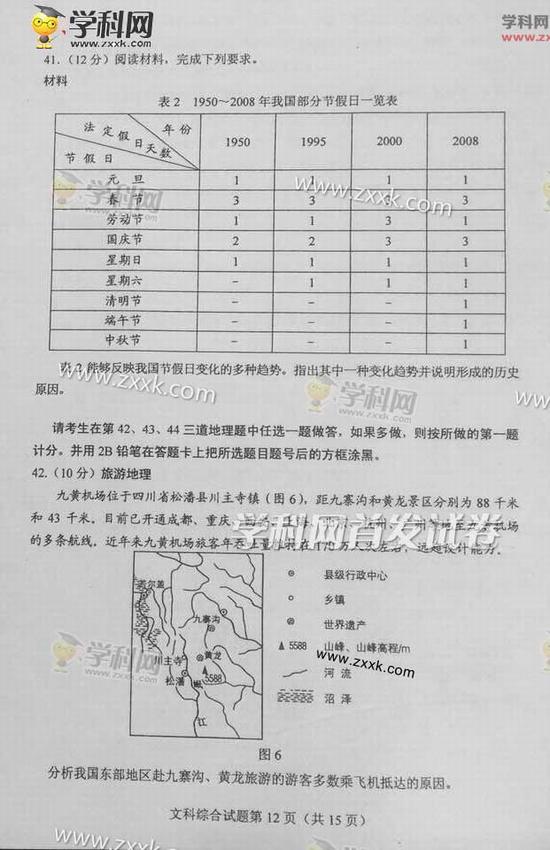 学科网
www.zxxk.com
学科网
www.zxxk
41.（12分）阅读材料，完成下列要求。
材料
表2 1950～2008年我国部分节假日一览表
法定假日天数 年份 节假日 1950 1995 2000 2008
元旦 1 1 1 1
春节 3 3 3 3
劳动节 1 1 3 1
国庆节 2 2 3 3
星期日 1 1 1 1
星期六 － 1 1 1
清明节 － － － 1
端午节 － － － 1
中秋节 － － － 1
表2能够反映我国节假日变化的多种趋势。指出其中一种变化趋势并说明形成的历史
原因。
请考生在第42、43、44三道地理题中任选一题做答，如果多做，则按所做的第一题
计分。并用2B铅笔在答题卡上把所选题目题号后的方框涂黑。
42.（10分）旅游地理
九黄机场位于四川省松潘县川主寺镇（图6），距九寨沟和黄龙景区分别为88千米
和43千米。目前已开通成都、重庆、
机场
的多条航线。近年来九黄机场旅客年吞吐量维持在170万人次左右，远超设计能力。
学科网首发试卷
若尔盖
九寨沟
川主寺
黄龙
5588
松潘
岷
江
县级行政中心
乡镇
世界遗产
5588 山峰、山峰高程/m
河流
沼泽
图6
分析我国东部地区赴九寨沟、黄龙旅游的游客多数乘飞机抵达的原因。
文科综合试题第12页（共15页）
学科网
www.zxxk.com
www.zxxk.com
www.zxxk.com
学科网
www.zxxk.com
www.zxxk.com
学科网